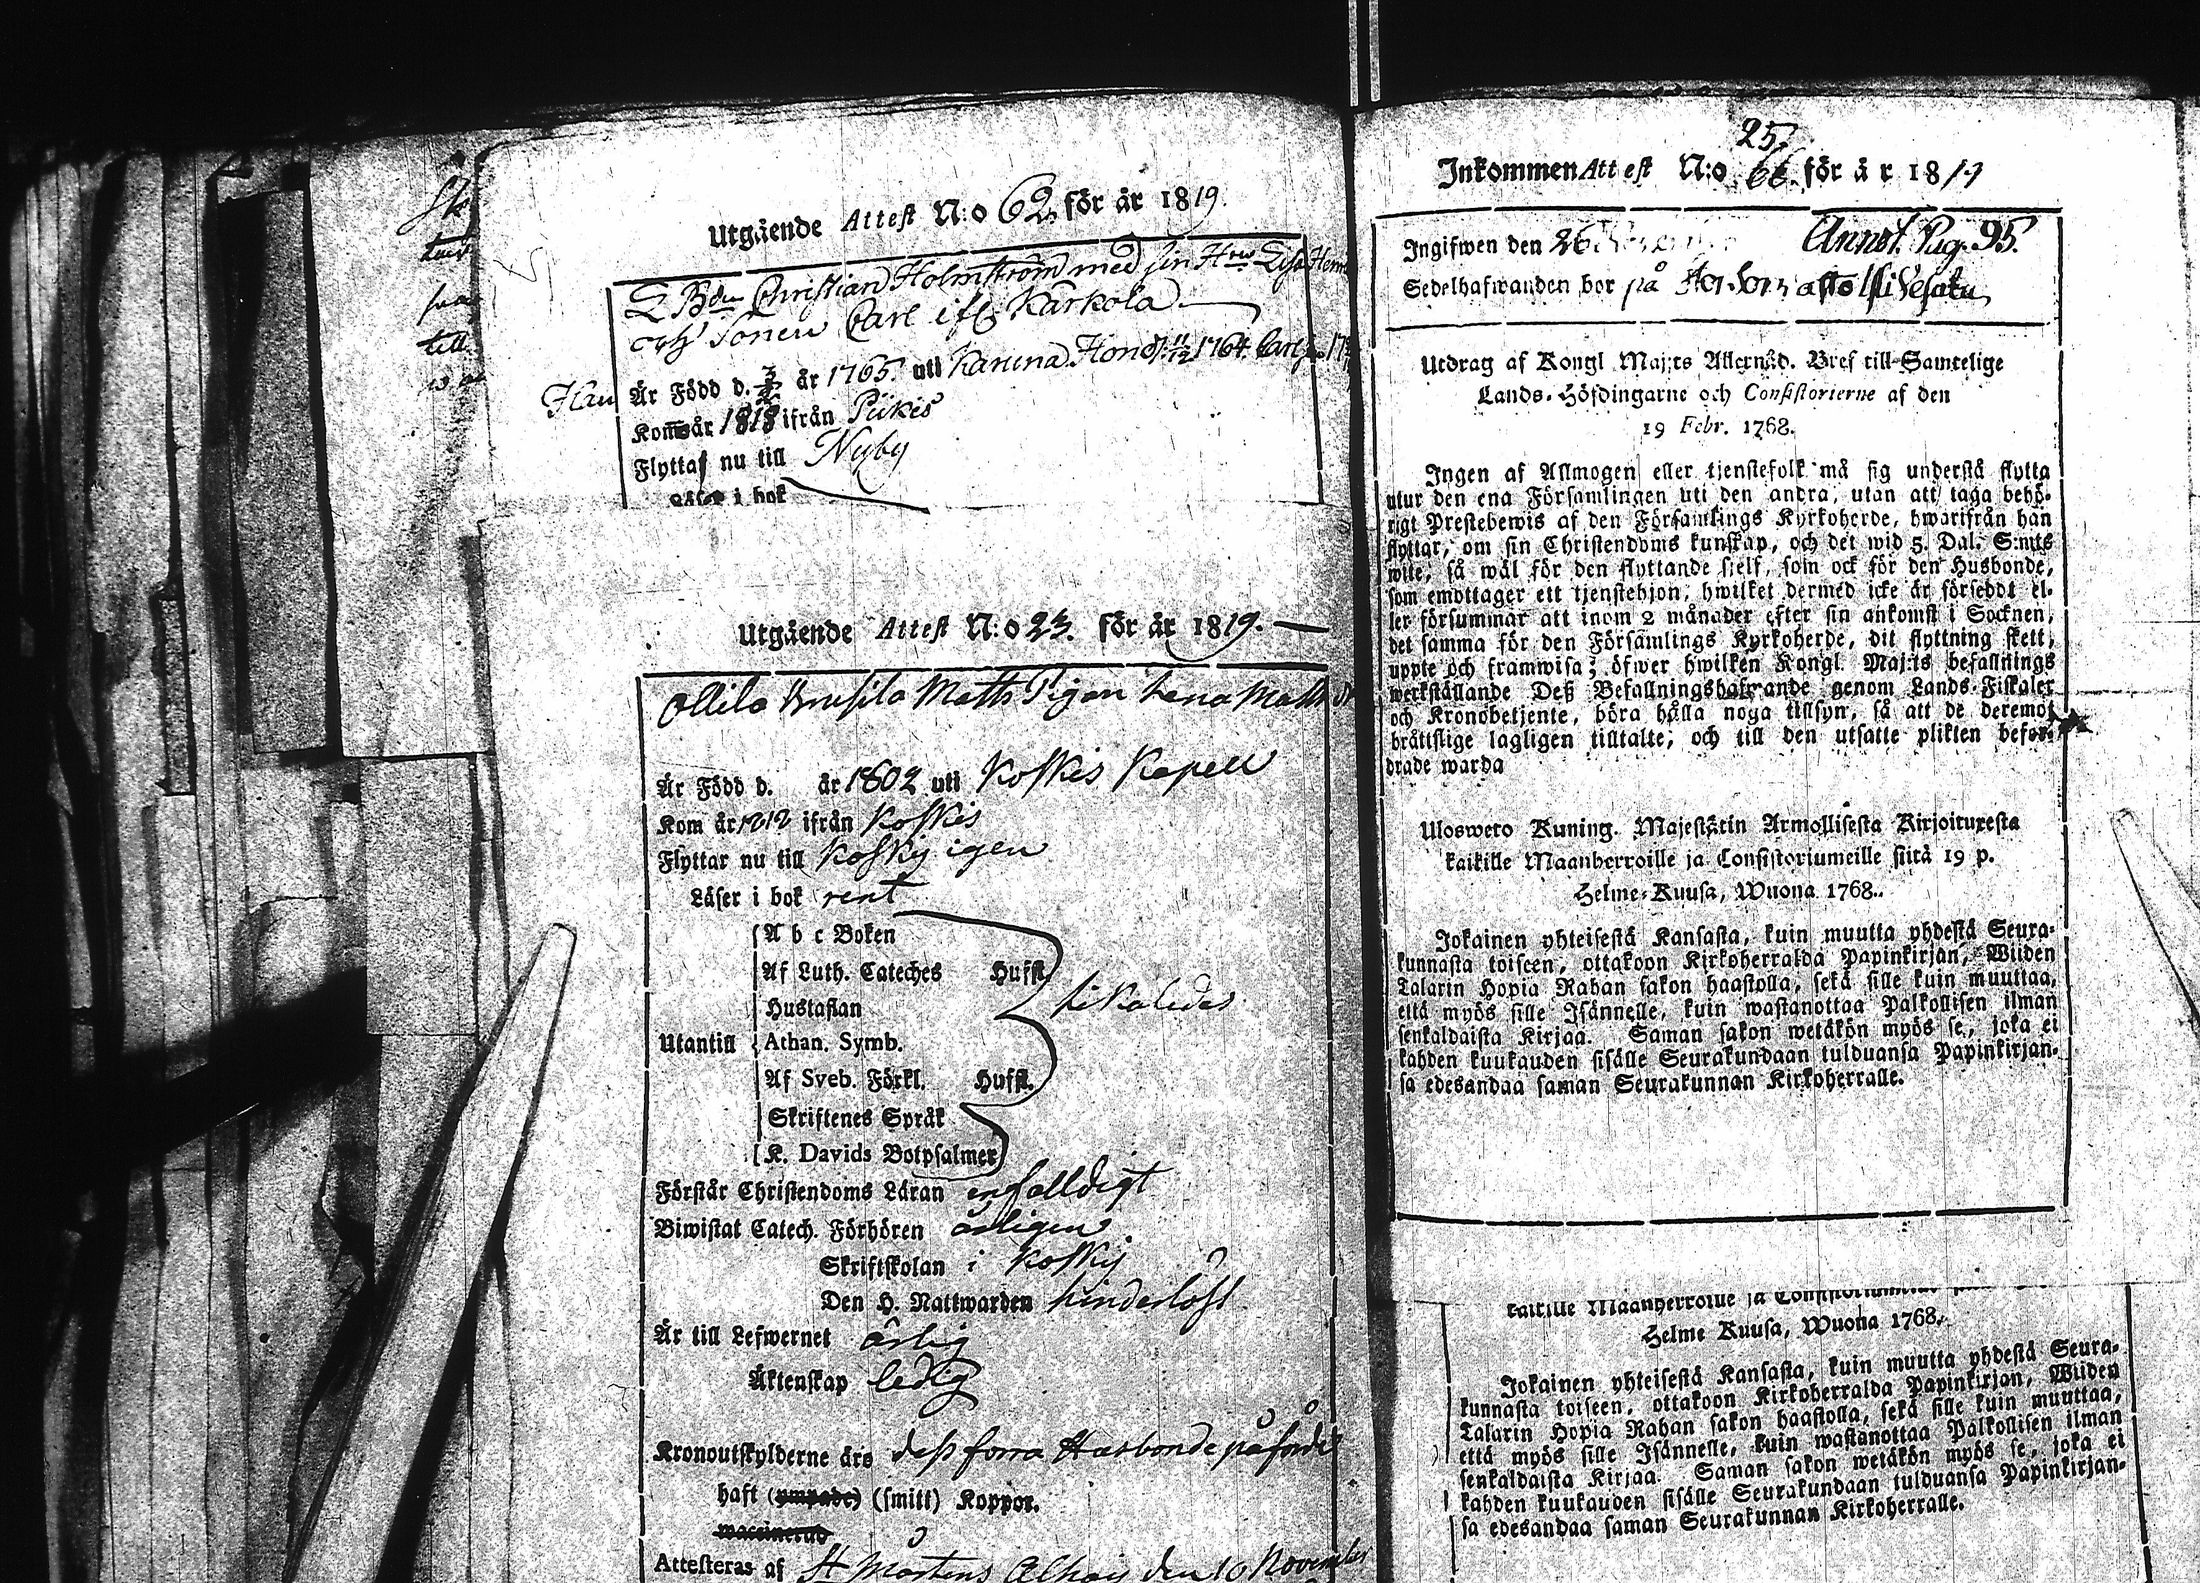 Utgående Attest N:o 62. för år 1819.
Christian Holmström med sin H:ru Lisa
och Sonen Carl ifr. Kärkola
Han Är Född d. år 1765. uti Karuna. Hon d. 11/12 1764. Carl
Kom år 1818 ifrån Piikis
Flyttar nu till Nyby
Läser i bok
Utgående Attest N:o 23. för år 1819.
Ollila Matts Pigan Lena Matts
Är Född d. år 1802 uti Koskis Kapell
Kom år 1812 ifrån Koskis
Flyttar nu till Koskij igen
Läser i bok rent
A b c Boken
Af Luth. Cateches Hufst.
Hustaflan likaledes
Utantill Athan. Symb.
Af Sveb. Förkl. Hufst.
Skriftenes Språk
K. Davids Botpsalmer
Förstår Christendoms Läran enfalldigt
Biwistat Catech. Förhören årligen
Skriftskolan i Koskij
Den H. Nattwarden hinderlöst
Är till Lefwernet ärlig
Äktenskap ledig
Kronoutskylderne äro dess förra Husbonde påförde
haft (ympade) (smitt) Koppor.
waccinerad
Attesteras af St Mårtens den 10 November
25.
Inkommen Attest N:o 66. för år 1819
Ingifwen den 26 Annot. Pag. 95.
Sedelhafwanden bor på
Utdrag af Kongl Maj:ts Allernåd. Bref till Samtelige
Lands-Höfdingarne och Consistorierne af den
19 Febr. 1768.
Ingen af Allmogen eller tjenstefolk må sig understå flytta
utur den ena Församlingen uti den andra, utan att taga behö-
rigt Prestebewis af den Församlings Kyrkoherde, hwarifrån han
flyttar, om sin Christendoms kunskap, och det wid 5. Dal. S:mts
wite, så wäl för den flyttande sjelf, som ock för den Husbonde,
som emottager ett tjenstehjon, hwilket dermed icke är försedt el-
ler försummar att inom 2 månader efter sin ankomst i Socknen,
det samma för den Församlings Kyrkoherde, dit flyttning skett,
uppte och framwisa; öfwer hwilken Kongl. Maj:ts befallnings
werkställande Deß Befallningshafwande genom Lands-Fiskaler
och Kronobetjente, böra hålla noga tillsyn, så att de deremot
bråttslige lagligen tilltalte, och till den utsatte plikten befor-
drade warda
Uloswetо Kuning. Majestätin Armollisesta Kirjoituxesta
kaikille Maanherroille ja Consistoriumeille siitä 19 p.
Helme-Kuusa, Wuona 1768.
Jokainen yhteisestä Kansasta, kuin muutta yhdestä Seura-
kunnasta toiseen, ottakoon Kirkoherralda Papinkirjan, Wiiden
Talarin Hopia Rahan sakon haastolla, sekä sille kuin muuttaa,
että myös sille Isännelle, kuin wastanottaa Palkollisen ilman
senkaldaista Kirjaa. Saman sakon wetäkön myös se, joka ei
kahden kuukauden sisälle Seurakundaan tulduansa Papinkirjan-
sa edesandaa saman Seurakunnan Kirkoherralle.
kaikille Maanherroille ja
Helme Kuusa, Wuona 1768.
Jokainen yhteisestä Kansasta, kuin muutta yhdestä Seura-
kunnasta toiseen, ottakoon Kirkoherralda Papinkirjan, Wiiden
Talarin Hopia Rahan sakon haastolla, sekä sille kuin muuttaa,
että myös sille Isännelle, kuin wastanottaa Palkollisen ilman
senkaldaista Kirjaa. Saman sakon wetäkön myös se, joka ei
kahden kuukauden sisälle Seurakundaan tulduansa Papinkirjan-
sa edesandaa saman Seurakunnan Kirkoherralle.